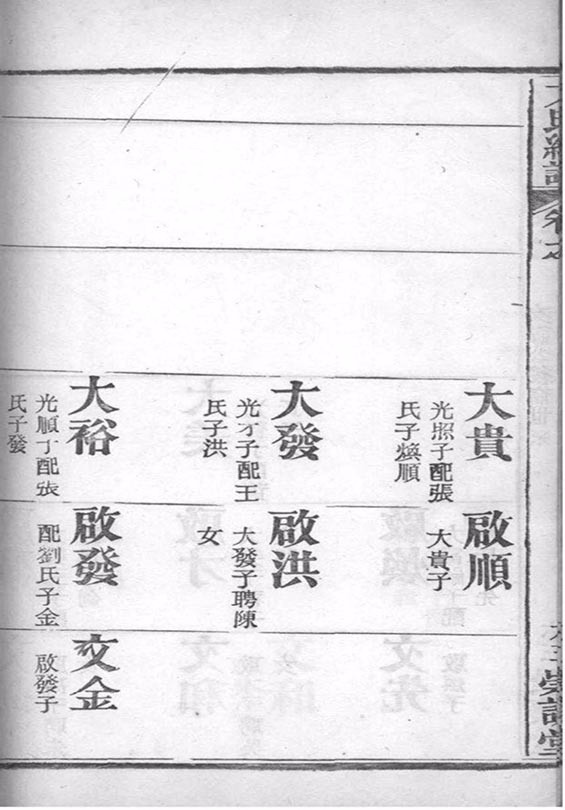 大貴
光照子配張
氏子煥順
大發
光才子配王
氏子洪
大裕
光順子配張
氏子發
啟順
大貴子
啟洪
大發子聘陳
女
啟發
配劉氏子金
文金
啟發子